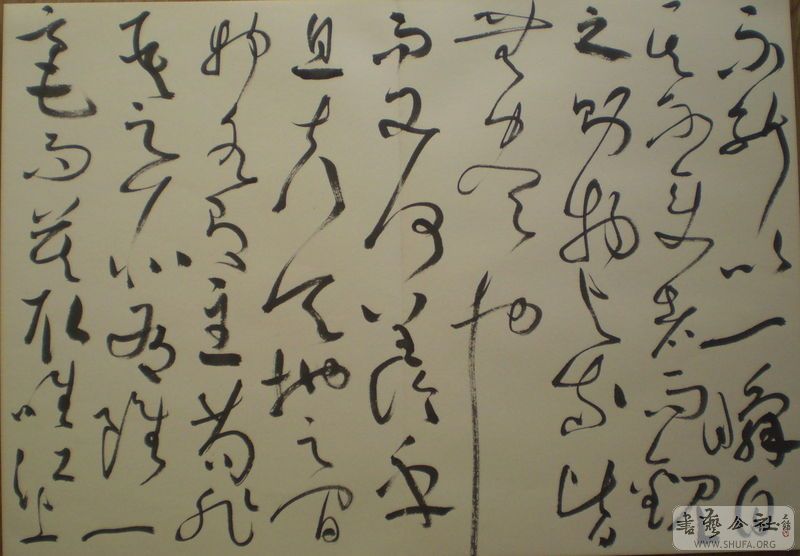 不能以一瞬自
其不變者而觀
之則物與我皆
無盡也
而又何羨乎
且夫天地之間
物各有主苟非
吾之所有雖一
毫而莫取唯江上
書藝公社
WWW.SHUFA.ORG